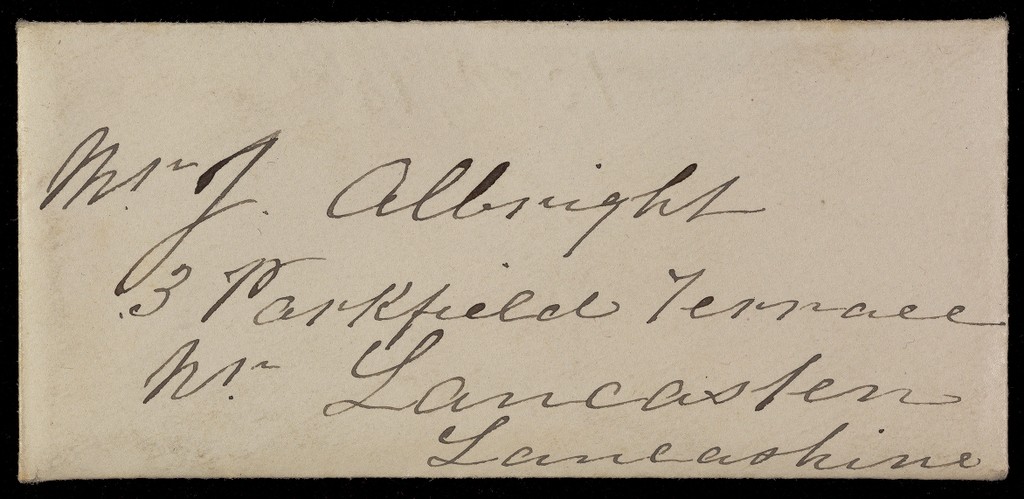 Mr. J. Albright
3 Parkfield Terrace
Nr. Lancaster
Lancashire